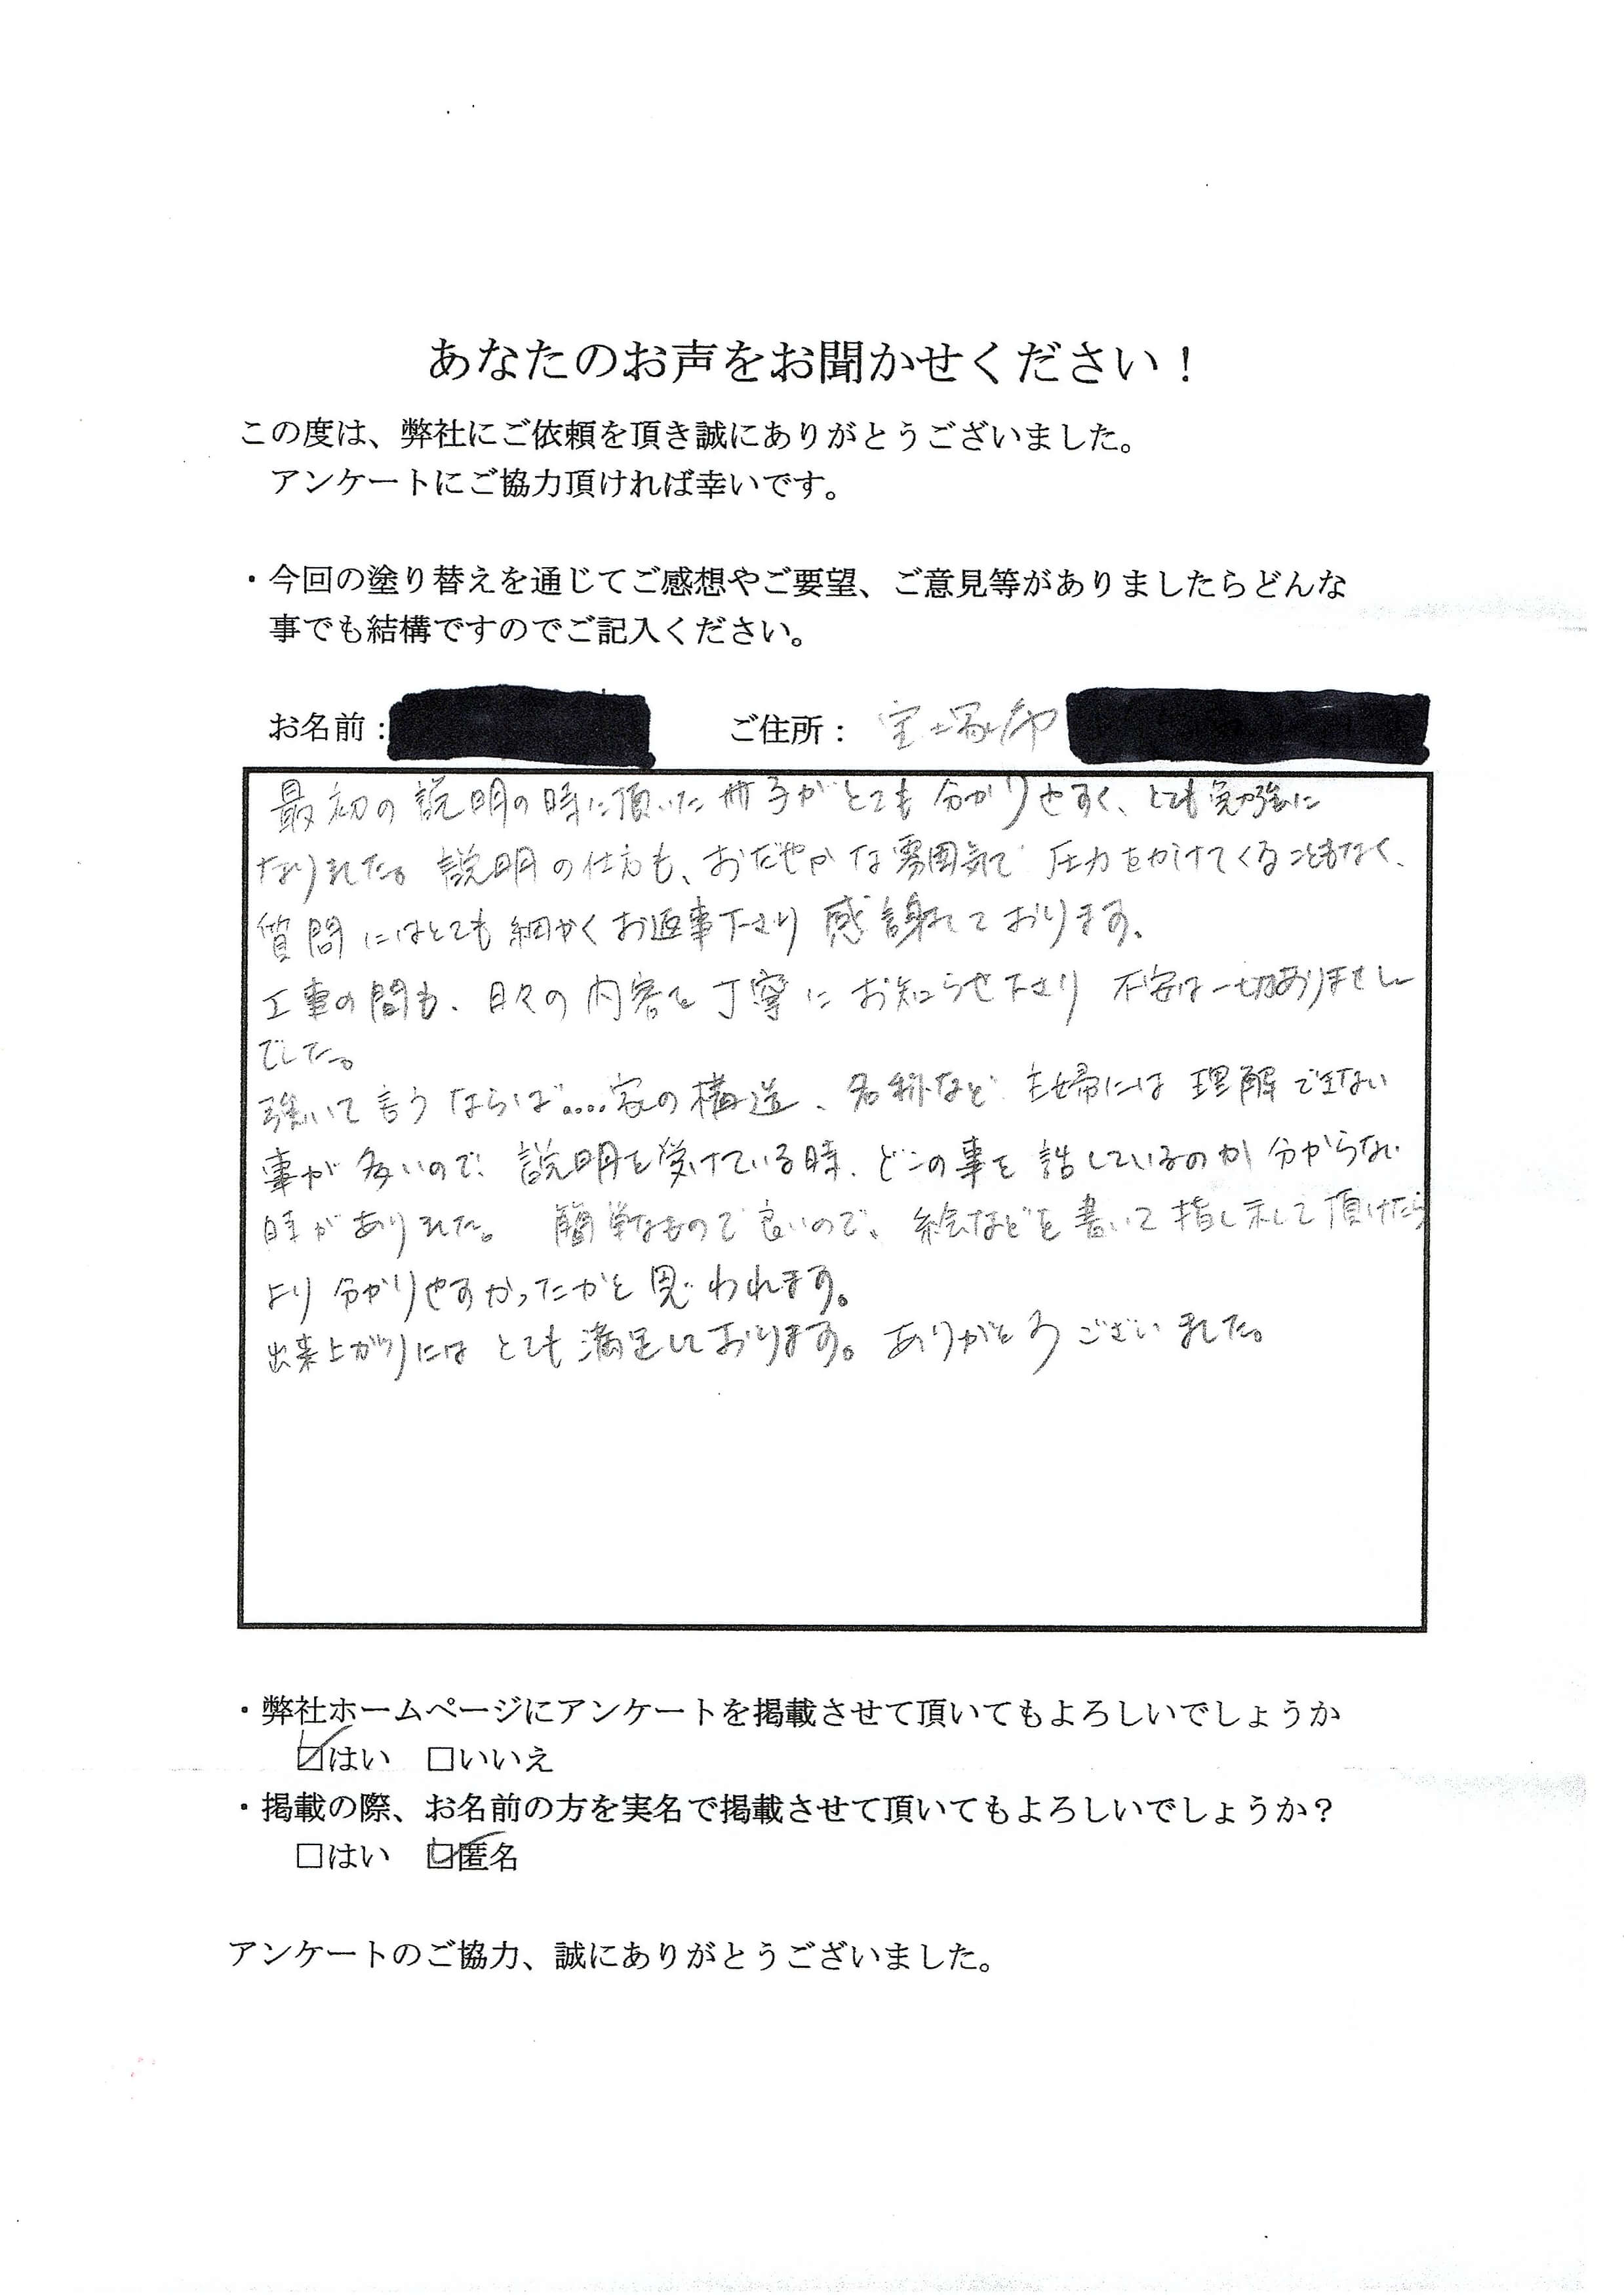 あなたのお声をお聞かせください！
この度は、弊社にご依頼を頂き誠にありがとうございました。
アンケートにご協力頂ければ幸いです。
・今回の塗り替えを通じてご感想やご要望、ご意見等がありましたらどんな
事でも結構ですのでご記入ください。
お名前： ご住所： 宝塚市
最初の説明の時に頂いた冊子がとても分かりやすく、とても勉強に
なりました。説明の仕方も、おだやかな雰囲気で圧力をかけてくることもなく、
質問にはとても細かくお返事下さり感謝しております。
工事の間も、日々の内容を丁寧にお知らせ下さり不安は一切ありません
でした。
強いて言うならば....家の構造、名称など主婦には理解できない
事が多いので、説明を受けている時、どこの事を話しているのか分からない
時がありました。簡単なもので良いので、絵などを書いて指し示して頂けたら
より分かりやすかったかと思われます。
出来上がりにはとても満足しております。ありがとうございました。
・弊社ホームページにアンケートを掲載させて頂いてもよろしいでしょうか
☑はい □いいえ
・掲載の際、お名前の方を実名で掲載させて頂いてもよろしいでしょうか？
□はい ☑匿名
アンケートのご協力、誠にありがとうございました。